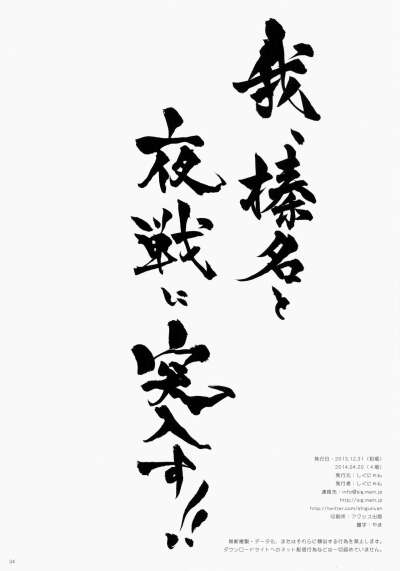 我、榛名と
夜戦に
突入す!!
発行日・2013.12.31（初版）
2014.04.20（4版）
発行元：しぐにゃん
発行者：しぐにゃん
連絡先：info@sig.nyant.jp
http://sig.nyant.jp
印刷所：クウセス出版
題字：やま
無断複製・データ化、またはそれらに類似する行為を禁止します。
ダウンロードサイトへのネット配信行為などは一切認めていません。